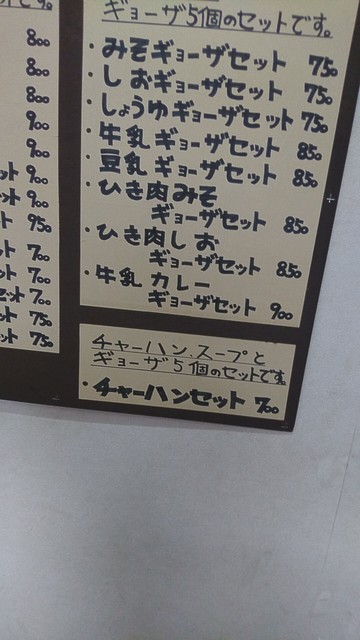 800
800
800
900
900
ット 900
ット 900
ト 950
ット 700
ット 700
セット 700
ット 750
ット 750
ギョーザ5個のセットです。
・みそギョーザセット 750
・しおギョーザセット 750
・しょうゆギョーザセット 750
・牛乳ギョーザセット 850
・豆乳ギョーザセット 850
・ひき肉みそ
ギョーザセット 850
・ひき肉しお
ギョーザセット 850
・牛乳カレー
ギョーザセット 900
チャーハン、スープと
ギョーザ5個のセットです。
・チャーハンセット 700